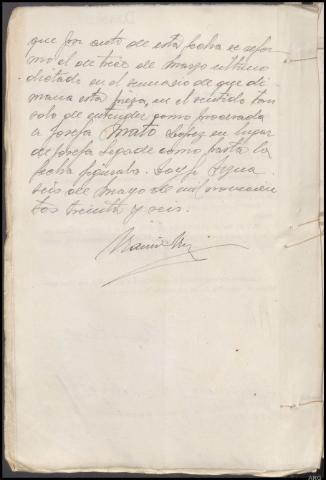 que por auto de esta fecha se refor-
mó el de trece de Marzo último
dictado en el sumario de que di-
mana esta pieza, en el sentido tan
solo de entender como procesada
a Josefa Mato López en lugar
de Josefa como hasta la
fecha figuraba. Doy fe.
seis de Mayo de mil novecien
tos treinta y seis.
ARG